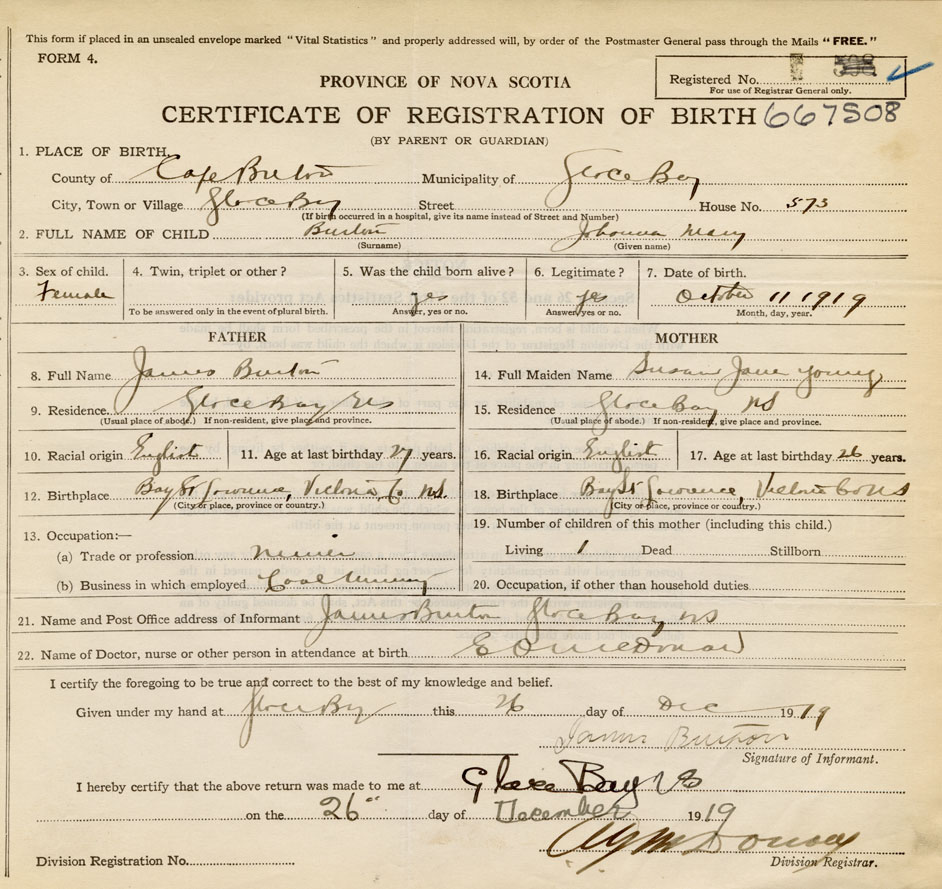 This form if placed in an unsealed envelope marked "Vital Statistics" and properly addressed will, by order of the Postmaster General pass through the Mails "FREE."
FORM 4.
PROVINCE OF NOVA SCOTIA
Registered No.
For use of Registrar General only.
CERTIFICATE OF REGISTRATION OF BIRTH 667508
(BY PARENT OR GUARDIAN)
1. PLACE OF BIRTH
County of Cape Breton Municipality of Glace Bay
City, Town or Village Glace Bay Street House No. 573
(If birth occurred in a hospital, give its name instead of Street and Number)
2. FULL NAME OF CHILD Burton Johanna Mary
(Surname) (Given name)
3. Sex of child. 4. Twin, triplet or other? 5. Was the child born alive? 6. Legitimate? 7. Date of birth.
Female yes yes October 11 1919
To be answered only in the event of plural birth. Answer, yes or no. Answer, yes or no. Month, day, year.
FATHER
8. Full Name James Burton
9. Residence Glace Bay NS
(Usual place of abode.) If non-resident, give place and province.
10. Racial origin English 11. Age at last birthday 27 years.
12. Birthplace Bay St Lawrence, Victoria Co NS.
(City or place, province or country.)
13. Occupation:—
(a) Trade or profession miner
(b) Business in which employed Coal Mining
MOTHER
14. Full Maiden Name Susan Jane Young
15. Residence Glace Bay NS
(Usual place of abode.) If non-resident, give place and province.
16. Racial origin English 17. Age at last birthday 26 years.
18. Birthplace Bay St Lawrence, Victoria Co NS
(City or place, province or country.)
19. Number of children of this mother (including this child.)
Living 1 Dead Stillborn
20. Occupation, if other than household duties
21. Name and Post Office address of Informant James Burton Glace Bay NS
22. Name of Doctor, nurse or other person in attendance at birth E O McDonald
I certify the foregoing to be true and correct to the best of my knowledge and belief.
Given under my hand at Glace Bay this 26 day of Dec 1919
James Burton
Signature of Informant.
I hereby certify that the above return was made to me at Glace Bay NS
on the 26" day of December 1919
Division Registration No. Division Registrar.